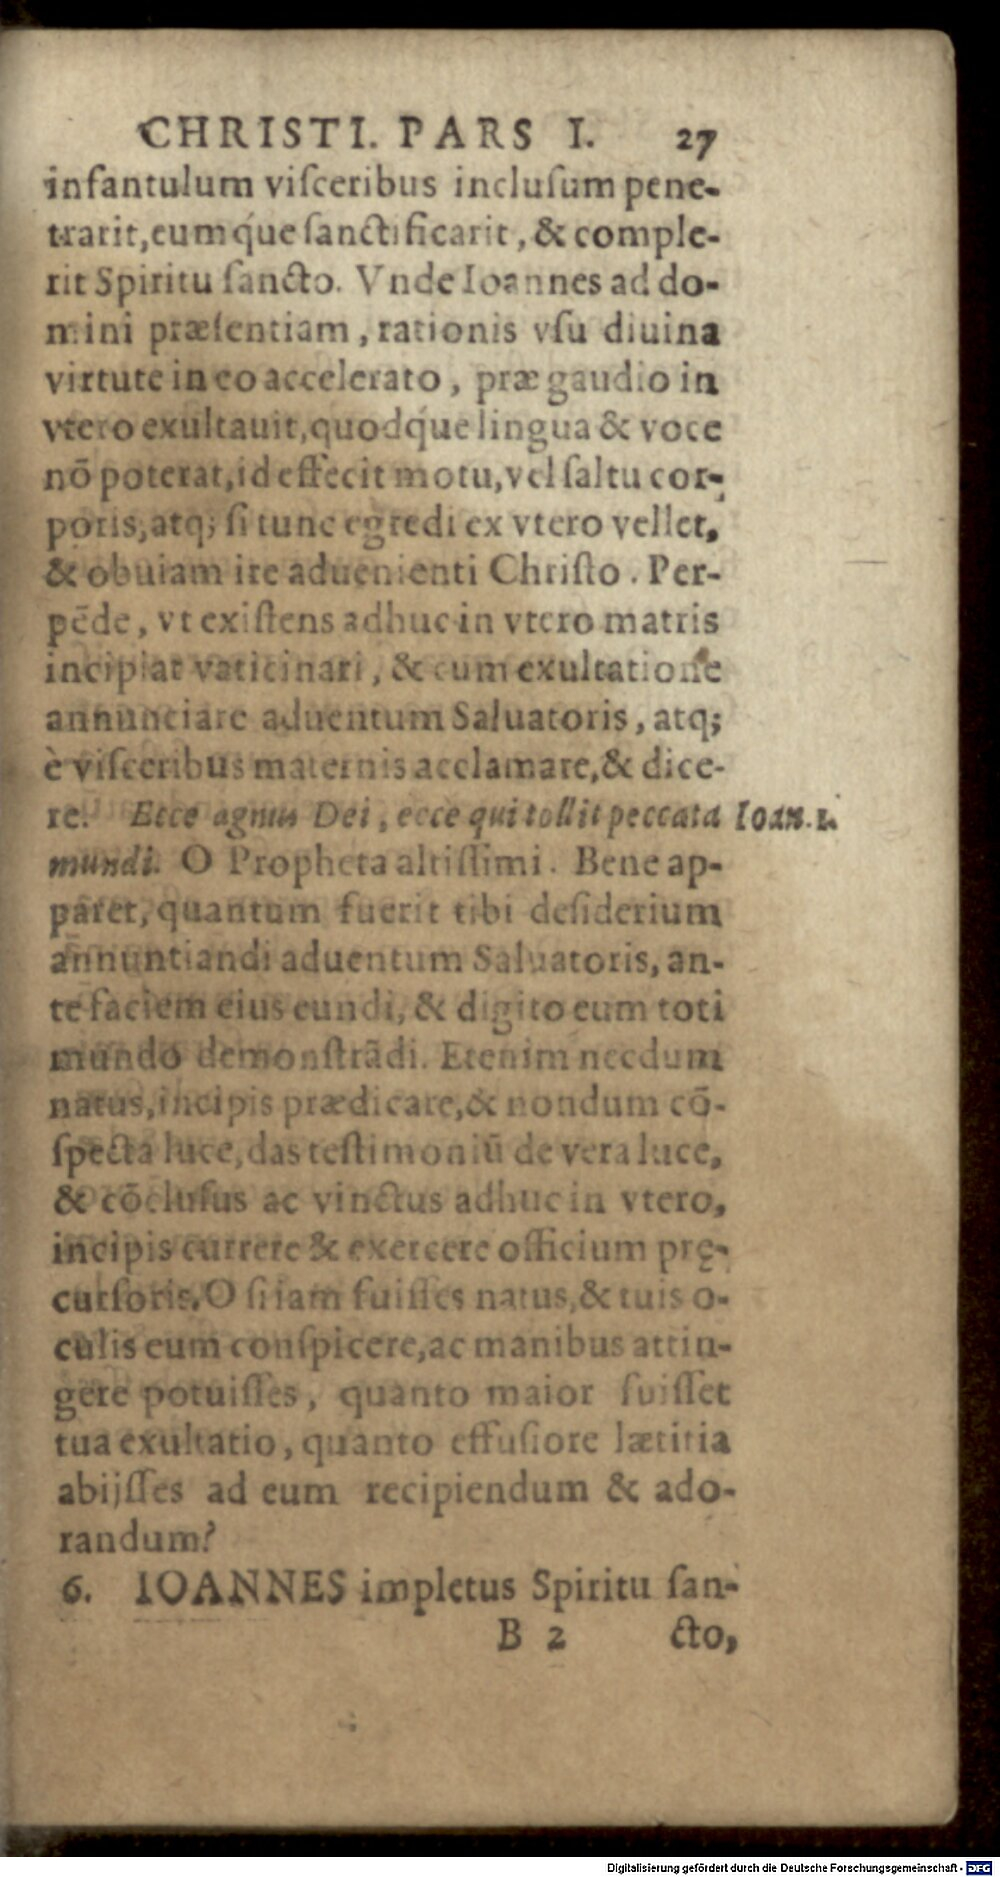 CHRISTI. PARS I. 27
infantulum viſceribus incluſum pene-
trarit, eumq́ue ſanctificarit, & comple-
rit Spiritu ſancto. Vnde Ioannes ad do-
mini præſentiam, rationis vſu diuina
virtute in eo accelerato, præ gaudio in
vtero exultauit, quodq́ue lingua & voce
nō poterat, id effecit motu, vel ſaltu cor-
poris, atq; ſi tunc egredi ex vtero vellet,
& obuiam ire aduenienti Chriſto. Per-
pēde, vt exiſtens adhuc in vtero matris
incipiat vaticinari, & cum exultatione
annunciare aduentum Saluatoris, atq;
è viſceribus maternis acclamare, & dice-
re. Ecce agnus Dei, ecce qui tollit peccata Ioan. 1.
mundi. O Propheta altiſſimi. Bene ap-
paret, quantum fuerit tibi deſiderium
annuntiandi aduentum Saluatoris, an-
te faciem eius eundi, & digito eum toti
mundo demonſtrādi. Etenim necdum
natus, incipis prædicare, & nondum cō-
ſpecta luce, das teſtimoniū de vera luce,
& cōcluſus ac vinctus adhuc in vtero,
incipis currere & exercere officium prę-
curſoris. O ſi iam fuiſſes natus, & tuis o-
culis eum conſpicere, ac manibus attin-
gere potuiſſes, quanto maior fuiſſet
tua exultatio, quanto effuſiore lætitia
abijſſes ad eum recipiendum & ado-
randum?
6. IOANNES impletus Spiritu ſan-
B 2 cto,
Digitalisierung gefördert durch die Deutsche Forschungsgemeinschaft - DFG